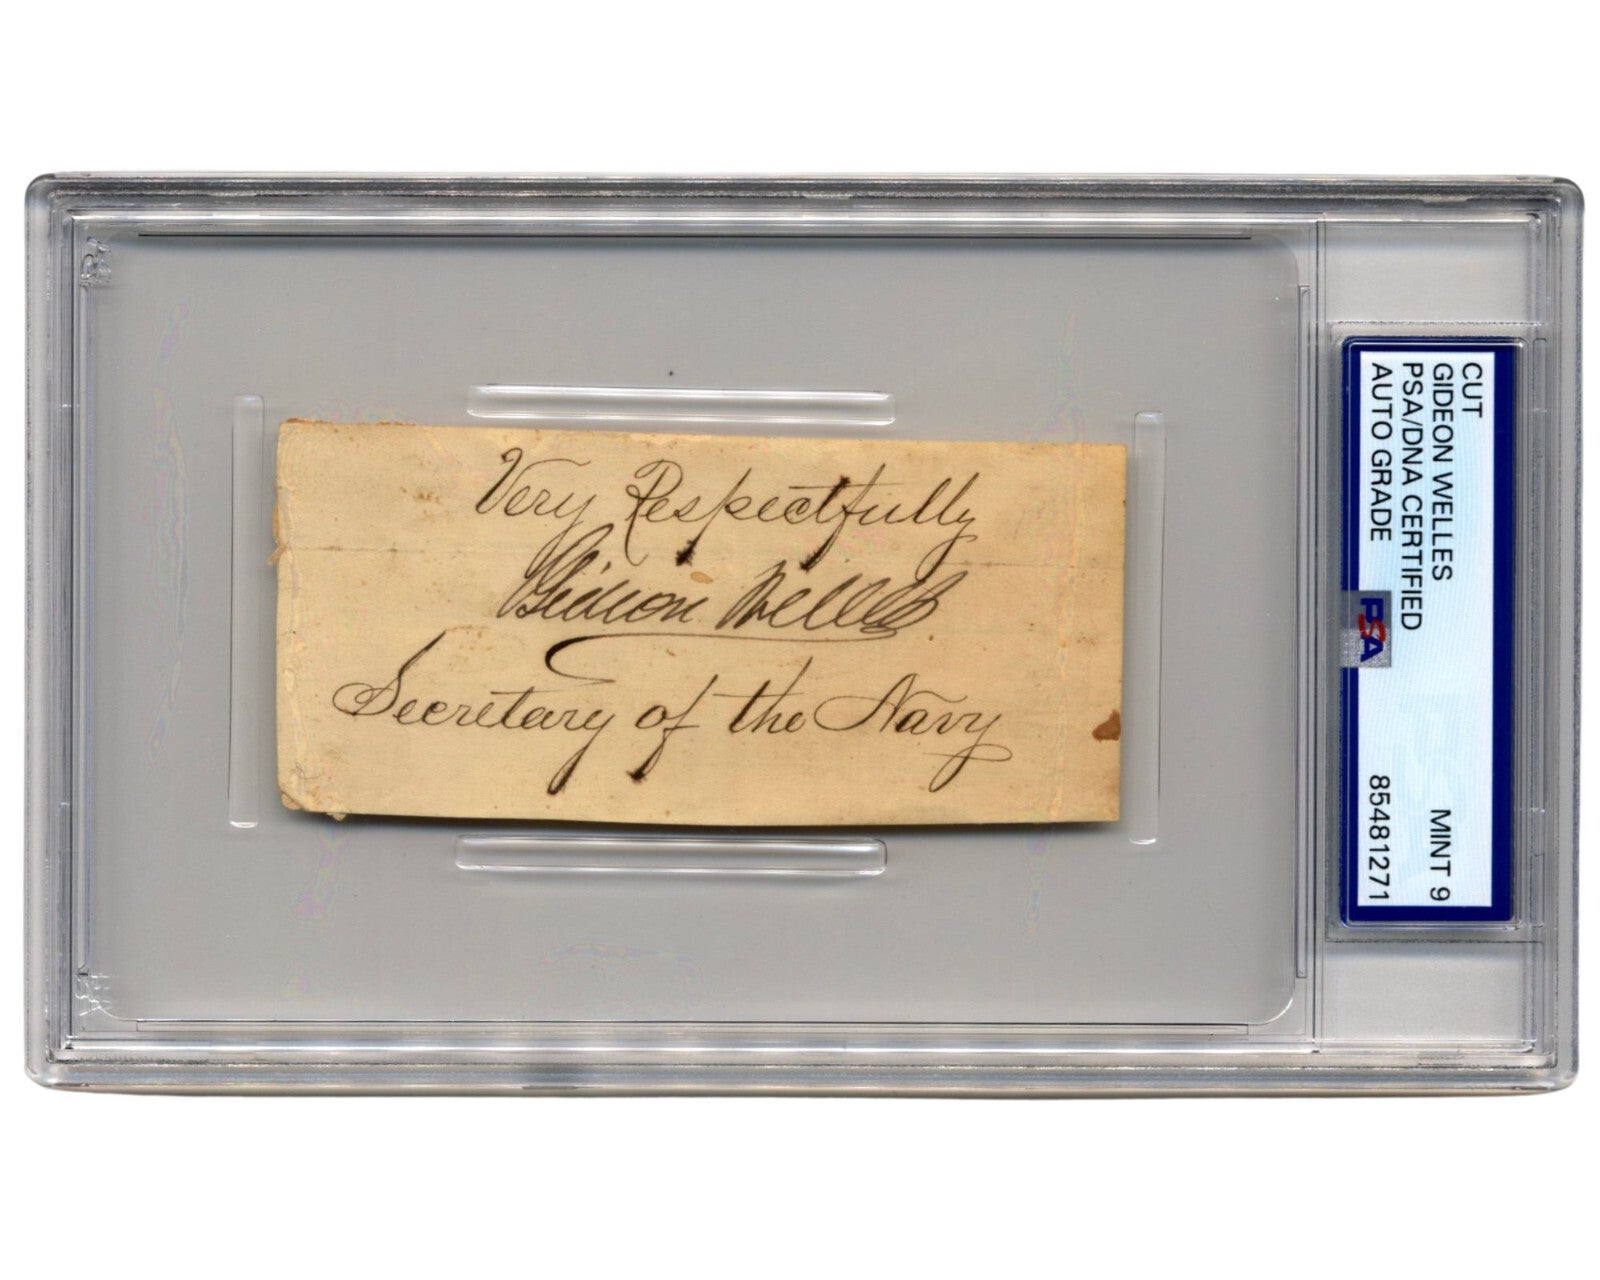 Very Respectfully
Gideon Welles
Secretary of the Navy
CUT
GIDEON WELLES
PSA/DNA CERTIFIED MINT 9
AUTO GRADE 85481271
PSA